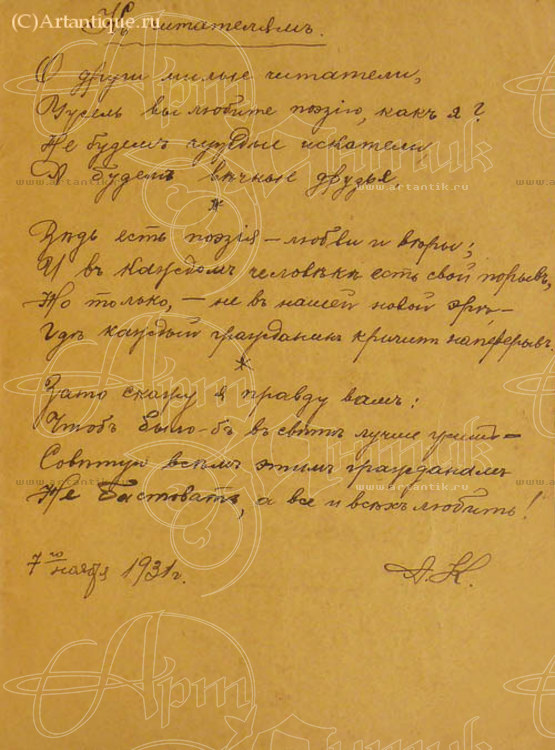 (C)Artantique.ru
Къ читателямъ.
О други милые читатели,
Ужель вы любите поэзію, какъ я?
Не будемъ чуждые искатели
А будемъ вѣчные друзья
*
Вѣдь есть поэзія – любви и вѣры;
И въ каждомъ человѣкѣ есть свой порывъ,
Но только, – не въ нашей новой эрѣ, –
Гдѣ каждый гражданинъ кричит наперерывъ.
*
Зато скажу я правду вамъ:
Чтобъ было-бъ въ свѣтѣ лучше жить –
Совѣтую всѣмъ этимъ гражданамъ
Не бастовать, а все и всѣхъ любить!
7го ноября 1931г.
А.К.
www.artantik.ru